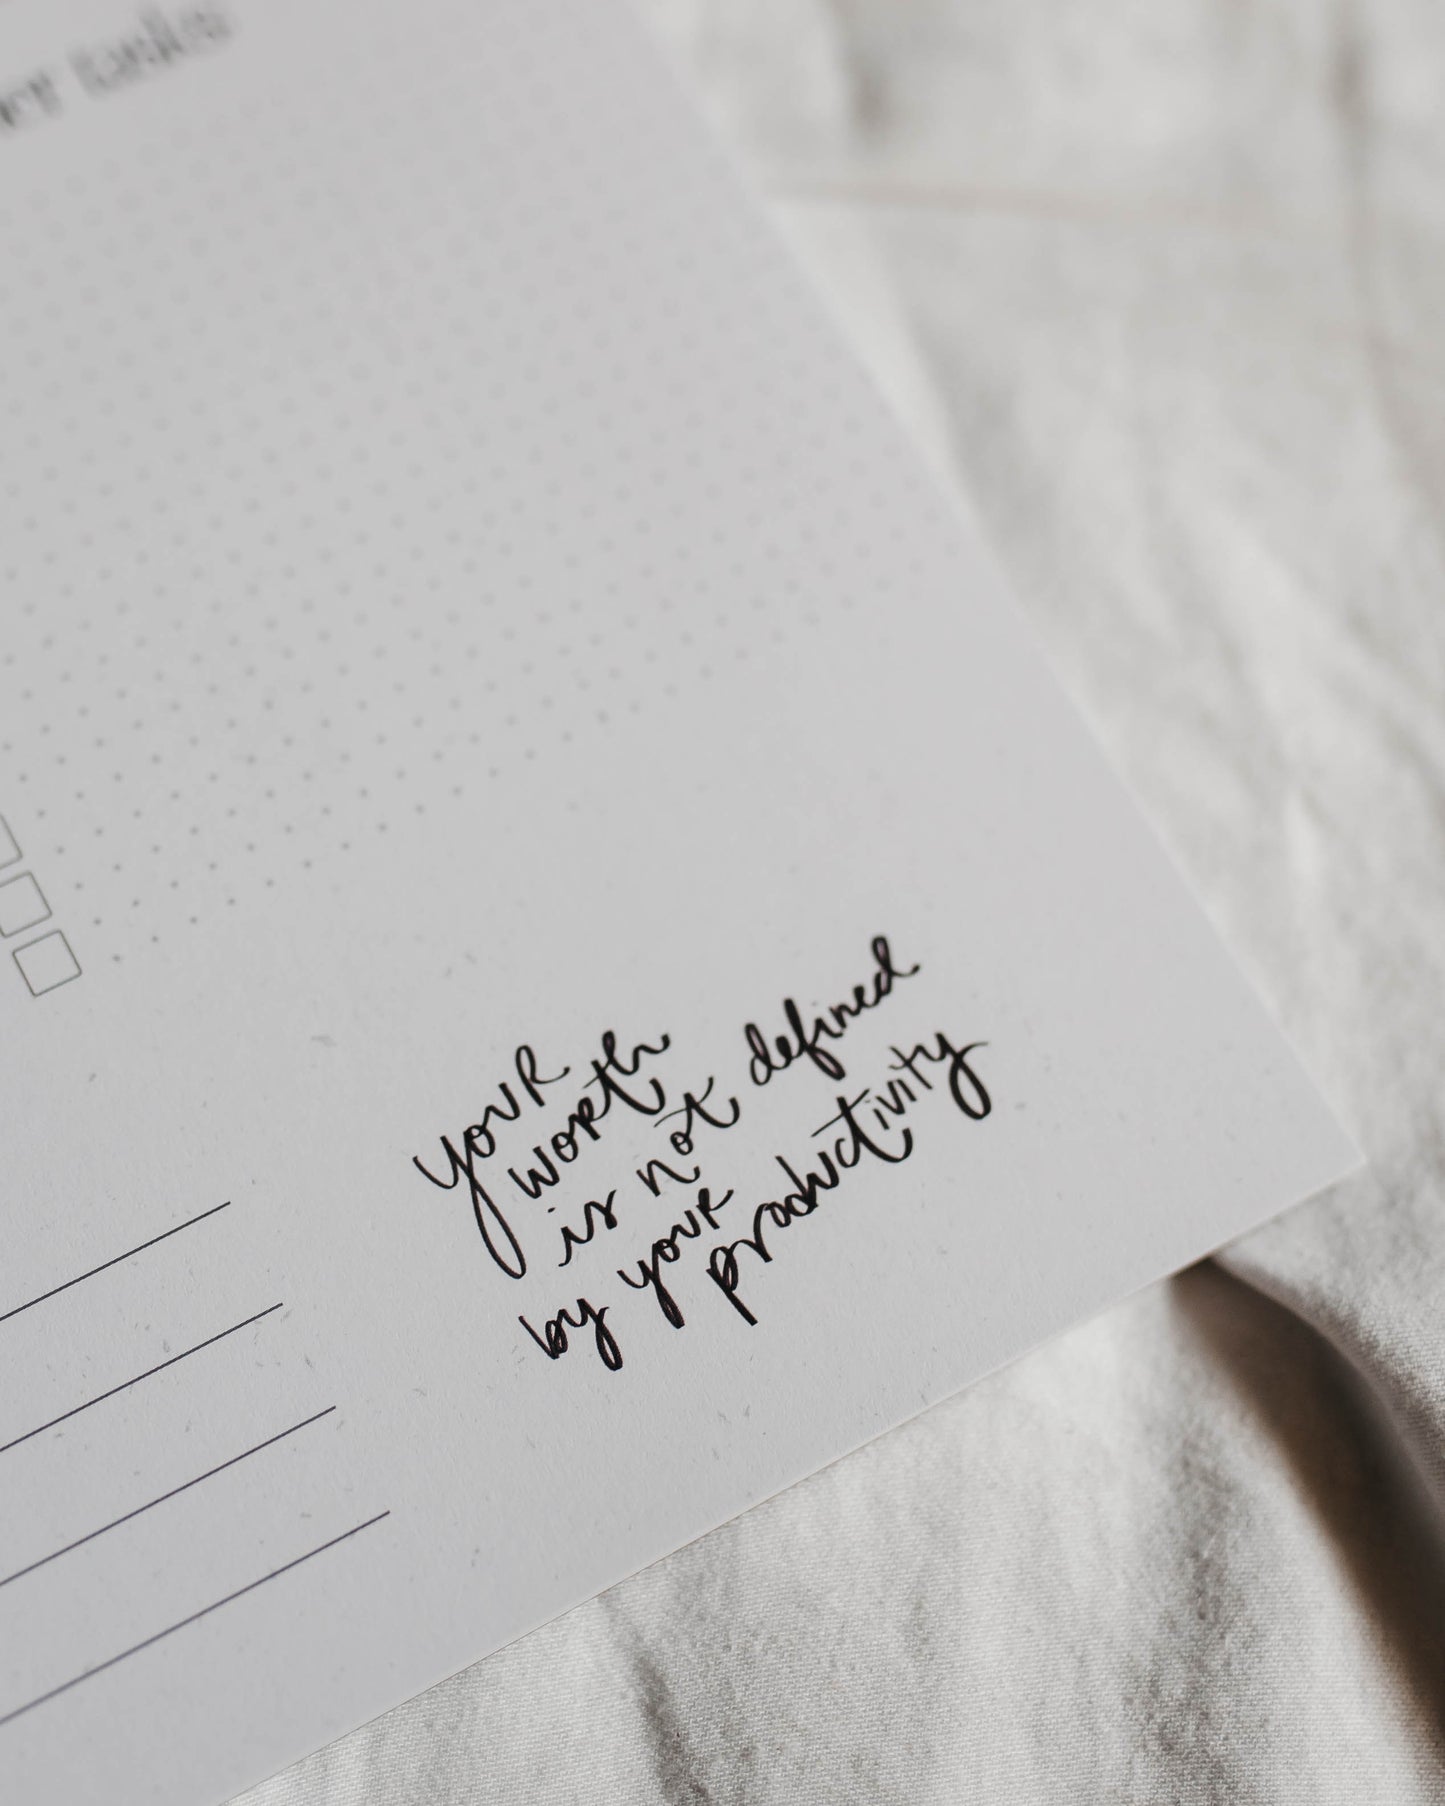 tasks
your
worth
is not defined
by your
productivity